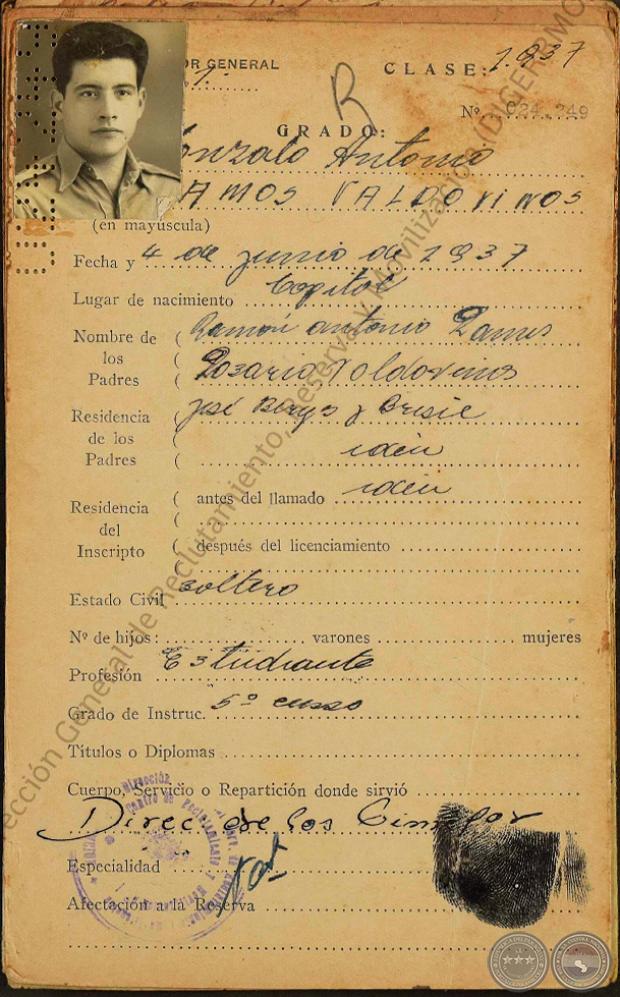 OR GENERAL
CLASE: 1.937
Nº 024.249
GRADO:
onzalo Antonio
AMOS VALDOVINOS
(en mayúscula)
Fecha y 4 de junio de 1937
Lugar de nacimiento Capital
Nombre de los Padres
Ramón Antonio Ramos
Rosario Valdovinos
Residencia de los Padres
José Berges y
idem
Residencia del Inscripto
antes del llamado idem
después del licenciamiento
Estado Civil soltero
Nº de hijos: varones mujeres
Profesión Estudiante
Grado de Instruc. 5º curso
Títulos o Diplomas
Cuerpo, Servicio o Repartición donde sirvió
Direc. de los Cimefor
Especialidad
Afectación a la Reserva
Dirección General de Reclutamiento, Reserva y Movilización (DIGERRMO